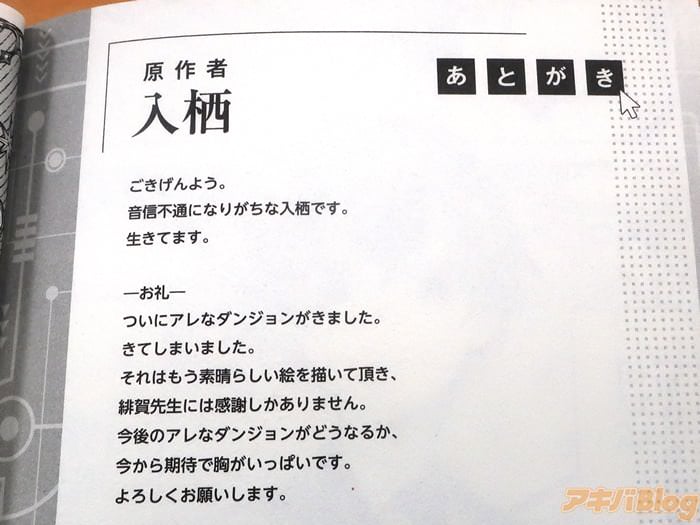 原作者
入栖
あとがき
ごきげんよう。
音信不通になりがちな入栖です。
生きてます。
―お礼―
ついにアレなダンジョンがきました。
きてしまいました。
それはもう素晴らしい絵を描いて頂き、
緋賀先生には感謝しかありません。
今後のアレなダンジョンがどうなるか、
今から期待で胸がいっぱいです。
よろしくお願いします。
アキバBlog